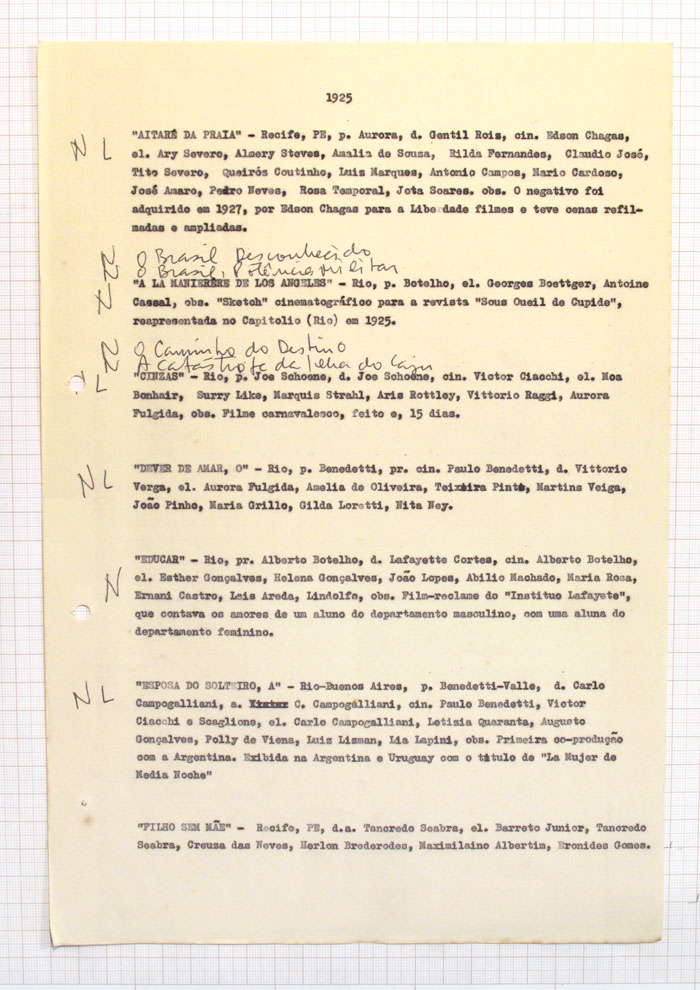 1925
N L "AITARÉ DA PRAIA" - Recife, PE, p. Aurora, d. Gentil Rois, cin. Edson Chagas,
el. Ary Severo, Almery Steves, Amalia de Sousa, Rilda Fernandes, Claudio José,
Tito Severo, Queirós Coutinho, Luis Marques, Antonio Campos, Mario Cardoso,
José Amaro, Pedro Neves, Rosa Temporal, Jota Soares. obs. O negativo foi
adquirido em 1927, por Edson Chagas para a Liberdade filmes e teve cenas refil-
madas e ampliadas.
O Brasil Desconhecido
O Brasil, Potência Militar
"A LA MANIERÈRE DE LOS ANGELES" - Rio, p. Botelho, el. Georges Boettger, Antoine
Cassal, obs. "Sketch" cinematográfico para a revista "Sous Oueil de Cupide",
reapresentada no Capitolio (Rio) em 1925.
O Caminho do Destino
A catástrofe da Ilha do Caju
L "CINZAS" - Rio, p. Joe Schoene, d. Joe Schoene, cin. Victor Ciacchi, el. Moa
Bonhair, Surry Like, Marquis Strahl, Aris Rottley, Vittorio Raggi, Aurora
Fulgida, obs. Filme carnavalesco, feito e, 15 dias.
N L "DEVER DE AMAR, O" - Rio, p. Benedetti, pr. cin. Paulo Benedetti, d. Vittorio
Verga, el. Aurora Fulgida, Amelia de Oliveira, Teixeira Pinto, Martins Veiga,
João Pinho, Maria Grillo, Gilda Loretti, Nita Ney.
"EDUCAR" - Rio, pr. Alberto Botelho, d. Lafayette Cortes, cin. Alberto Botelho,
N el. Esther Gonçalves, Helena Gonçalves, João Lopes, Abilio Machado, Maria Rosa,
Ernani Castro, Lais Areda, Lindolfo, obs. Film-reclame do "Instituo Lafayete",
que contava os amores de um aluno do departamento masculino, com uma aluna do
departamento feminino.
N L "ESPOSA DO SOLTEIRO, A" - Rio-Buenos Aires, p. Benedetti-Valle, d. Carlo
Campogalliani, a. C. Campogálliani, cin. Paulo Benedetti, Victor
Ciacchi e Scaglione, el. Carlo Campogalliani, Letizia Quaranta, Augusto
Gonçalves, Polly de Viena, Luis Lisman, Lia Lapini, obs. Primeira co-produção
com a Argentina. Exibida na Argentina e Uruguay com o título de "La Mujer de
Media Noche"
"FILHO SEM MÃE" - Recife, PE, d.a. Tancredo Seabra, el. Barreto Junior, Tancredo
Seabra, Creusa das Neves, Herlon Brederodes, Maximilaino Albertim, Eronides Gomes.